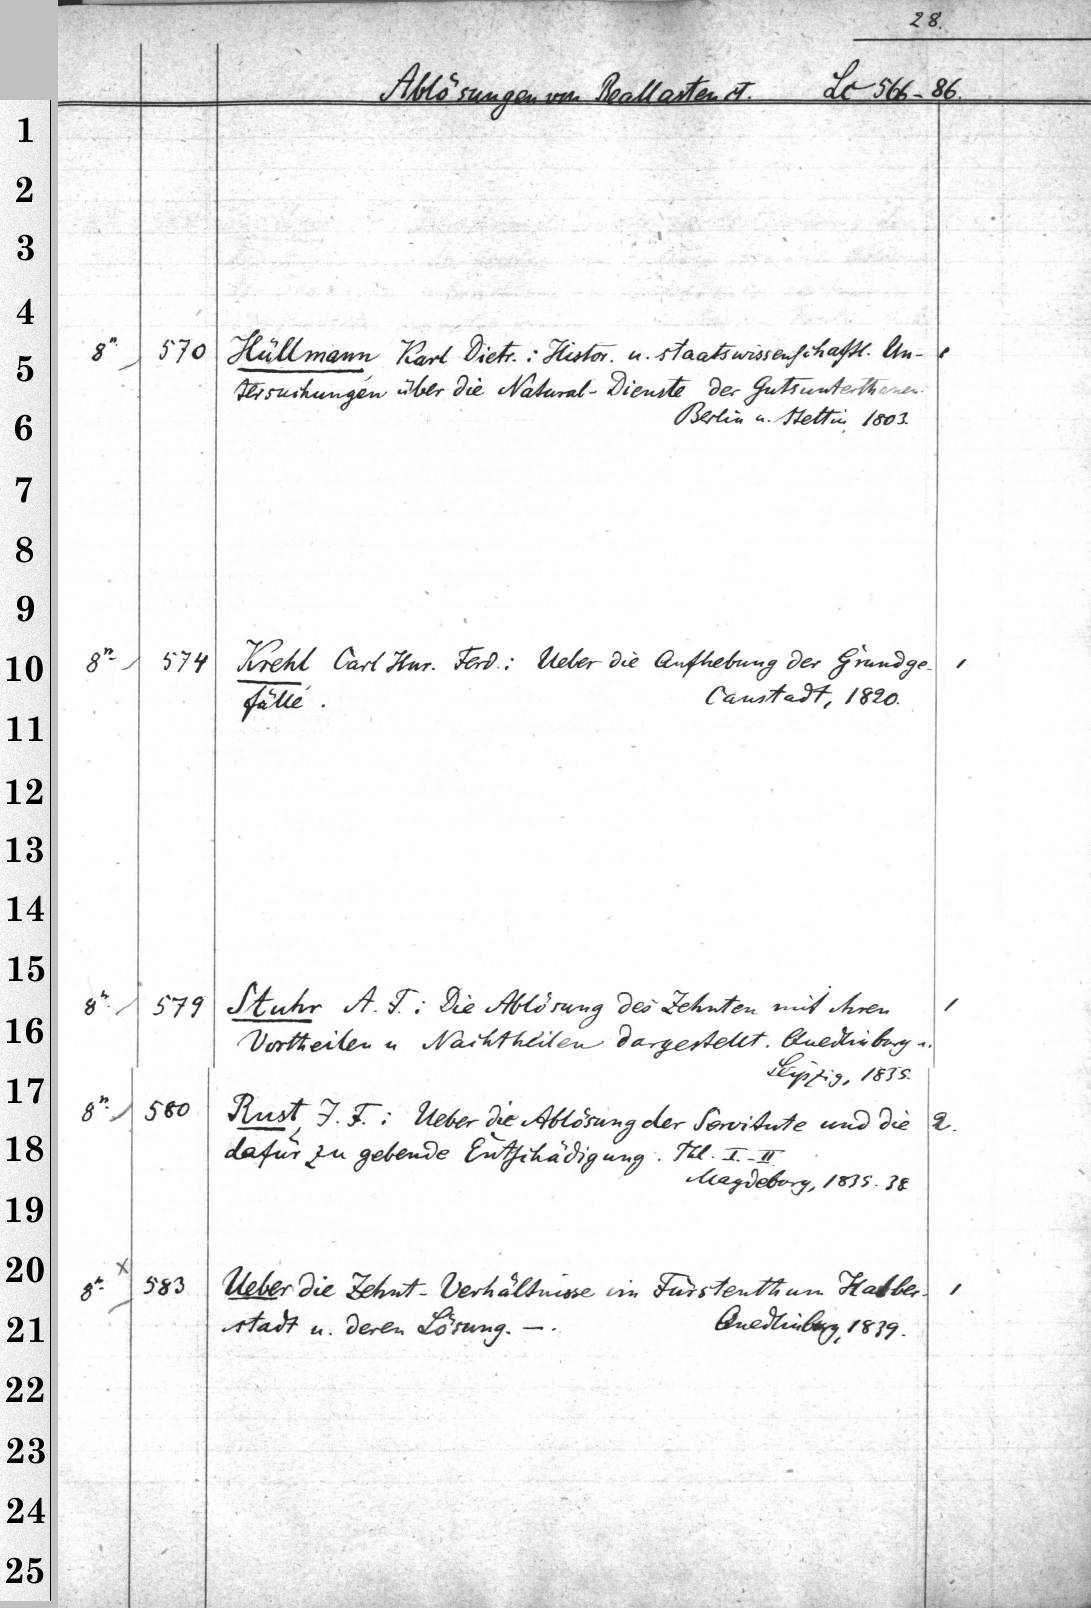 28.
Ablösungen von Reallasten ct. Lc 566-86.
1
2
3
4
8°. 570 Hüllmann Karl Dietr.: Histor. u. staatswissenschaftl. Un- 1
5
tersuchungen über die Natural-Dienste der Gutsunterthanen.
6
Berlin u. Stettin, 1803.
7
8
9
10
8°. 574 Krehl Carl Hnr. Ferd.: Ueber die Aufhebung der Grundge- 1
fälle. Canstadt, 1820.
11
12
13
14
15
8°. 579 Stuhr A. F.: Die Ablösung des Zehnten mit ihren 1
16
Vortheilen u Nachtheilen dargestellt. Quedlinburg u.
Leipzig, 1835.
17
8°. 580 Rust, J. F.: Ueber die Ablösung der Servitute und die 2.
18
dafür zu gebende Entschädigung. Thl. I.-II
Magdeburg, 1835. 38
19
20
x
8°. 583 Ueber die Zehnt-Verhältnisse im Fürstenthum Halber- 1
21
stadt u. deren Lösung. —. Quedlinburg, 1839.
22
23
24
25